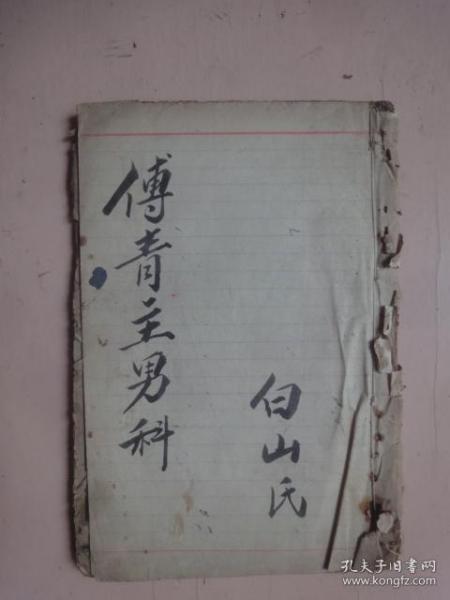 傅青主男科
白山氏
孔夫子旧书网
www.kongfz.com